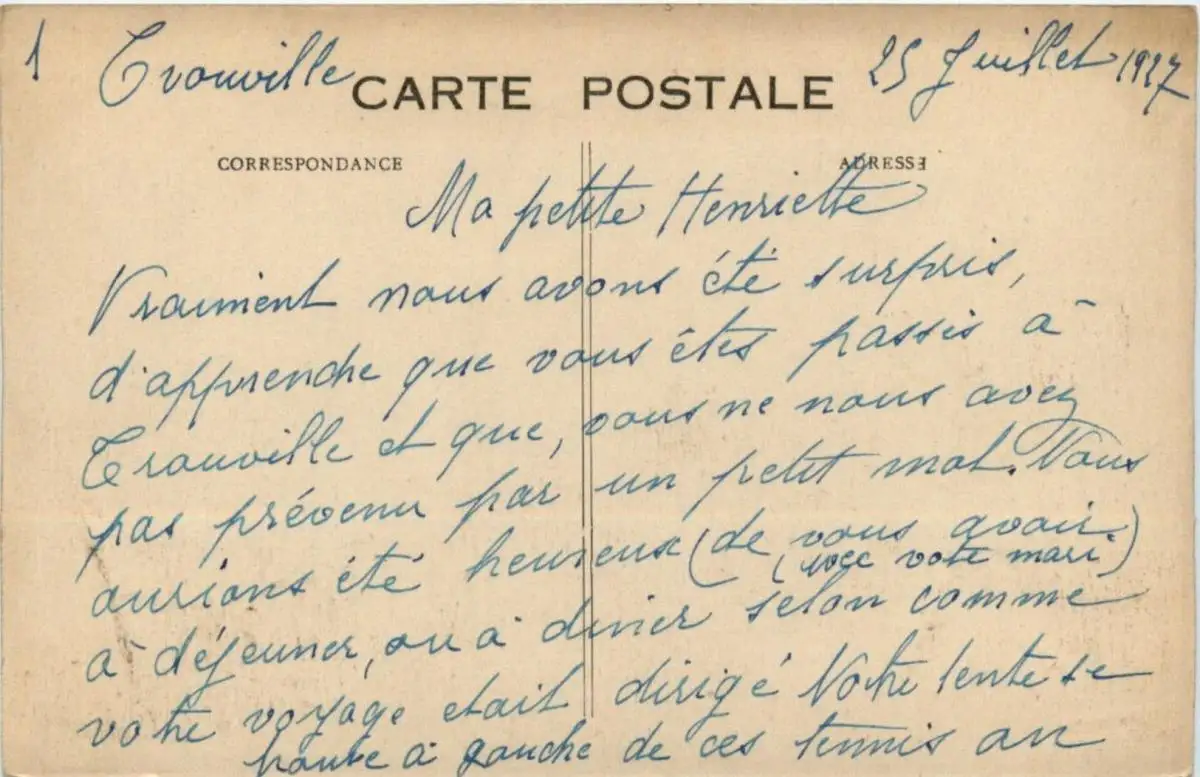 1
Trouville
25 Juillet 1927
CARTE POSTALE
CORRESPONDANCE
ADRESSE
Ma petite Henriette
Vraiment nous avons été surpris,
d'apprendre que vous êtes passés à
Trouville et que, vous ne nous avez
pas prévenu par un petit mot. Nous
aurions été heureux (de vous avoir)
(avec votre mari)
à déjeuner, ou à diner selon comme
votre voyage etait dirigé Notre tente se
trouve à gauche de ces tennis au